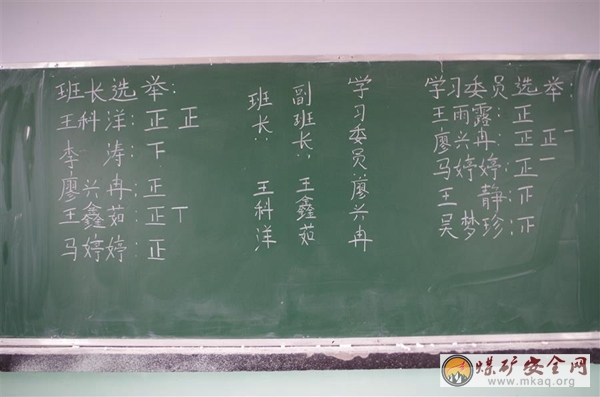 班长选举:
王科洋:正 正
李 涛:下
廖兴冉:正
王鑫茹:正 丅
马婷婷:正
班长: 王科洋
副班长: 王鑫茹
学习委员:廖兴冉
学习委员选举:
王雨露:正
廖兴冉:正 正 一
马婷婷:正 一
王 静:正
吴梦珍:正
煤矿安全网
www.mkaq.org